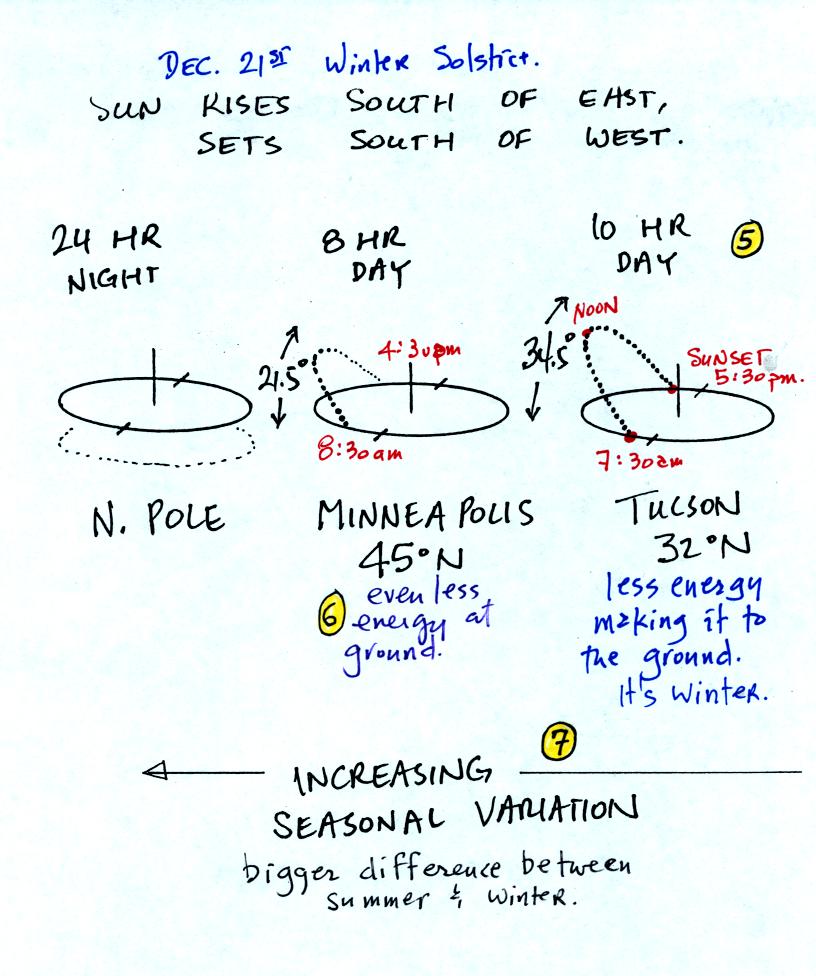 DEC. 21ST Winter Solstice.
SUN RISES SOUTH OF EAST,
SETS SOUTH OF WEST.
24 HR
NIGHT
8 HR
DAY
10 HR
DAY
5
NOON
4:30pm
21.5°
34.5°
SUNSET
5:30pm.
8:30am
7:30am
N. POLE
MINNEAPOLIS
45°N
TUCSON
32°N
6
even less
energy at
ground.
less energy
making it to
the ground.
It's winter.
7
INCREASING
SEASONAL VARIATION
bigger difference between
summer & winter.